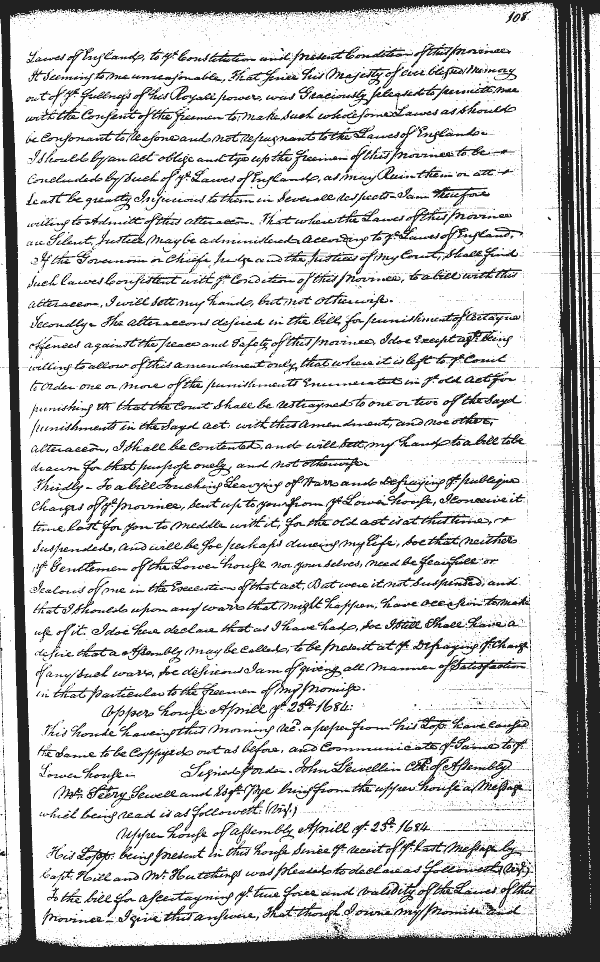 108
Lawes of England, to ye Constitution and present Condition of this province
It seeming to me unreasonable, That since his Majesty of ever blessed Memory
out of ye fullness of his Royall power, was Graciously pleased to permitt mee
with the Consent of the freemen to make such wholesome Lawes as should
be Consonant to reason and not repugnant to the Lawes of England
I should by an Act oblige and tye up the freemen of this province to be
Concluded by such of ye Lawes of England, as may Ruin them or att
Least be greatly Injurious to them in severall respects I am therefore
willing to Admitt of this alteracon. That where the Lawes of this province
are silent, Justice may be administred according to ye Lawes of England,
If the Governor or Chiefe Judge and the Justices of my Court, shall find
such lawes Consistent with ye Condition of this province, to a bill with this
alteracon, I will sett my hand, but not otherwise.
Secondly - The alteracons desired in the bill, for punishment of certayne
offences against the peace and safety of this province, I doe Except agt. being
willing to allow of this amendment only, that where it is left to ye Court
to order one or more of the punishments Enumerated in ye old Act for
punishing &c that the Court shall be restrayned to one or two of the sayd
punishments in the sayd Act. with this amendment, and noe other,
alteracon, I shall be Contented, and will sett my hand to a bill to be
drawn for that purpose onely, and not otherwise.
Thirdly - To a bill touching Leavying of Warr and Defraying ye publique
Charges of ye province, sent up to you from ye Lower house, I conceive it
time lost for you to meddle with it, for the old act is at this time,
suspended, and will be soe perhaps dureing my life, soe that neither
ye Gentlemen of the Lower house nor your selves, need be fearfull or
Jealous of me in the Execution of that act, But were it not suspended, and
that I should upon any warr that might happen, have occasion to make
use of it. I doe here declare that as I have had, soe I still shall have a
desire that a Assembly may be called, to be present at ye Defraying ye Charge
of any such warr, soe desirous I am of giveing all manner of satisfaction
in that particular to the freemen of my province.
Upper house Aprill ye 25th 1684:
This house haveing this Morning rec. a paper from his Lop. have caused
the same to be Coppyed out as before, and Communicate ye same to ye
Lower house. Signed p order. John Lewellin Clk of Assembly
Mr. Sewell and Esqr. Tye being from the upper house a Message
which being read is as followeth. (viz.)
Upper house of assembly Aprill ye 25th 1684
His Lopp. being present in this house since ye receit of ye last Message by
Capt. Hill and Mr. Hutchings was pleased to declare as followeth (viz.)
To the bill for ascertayning ye true force and validity of the Lawes of this
Province - I give this answere, That though I owne my promise and